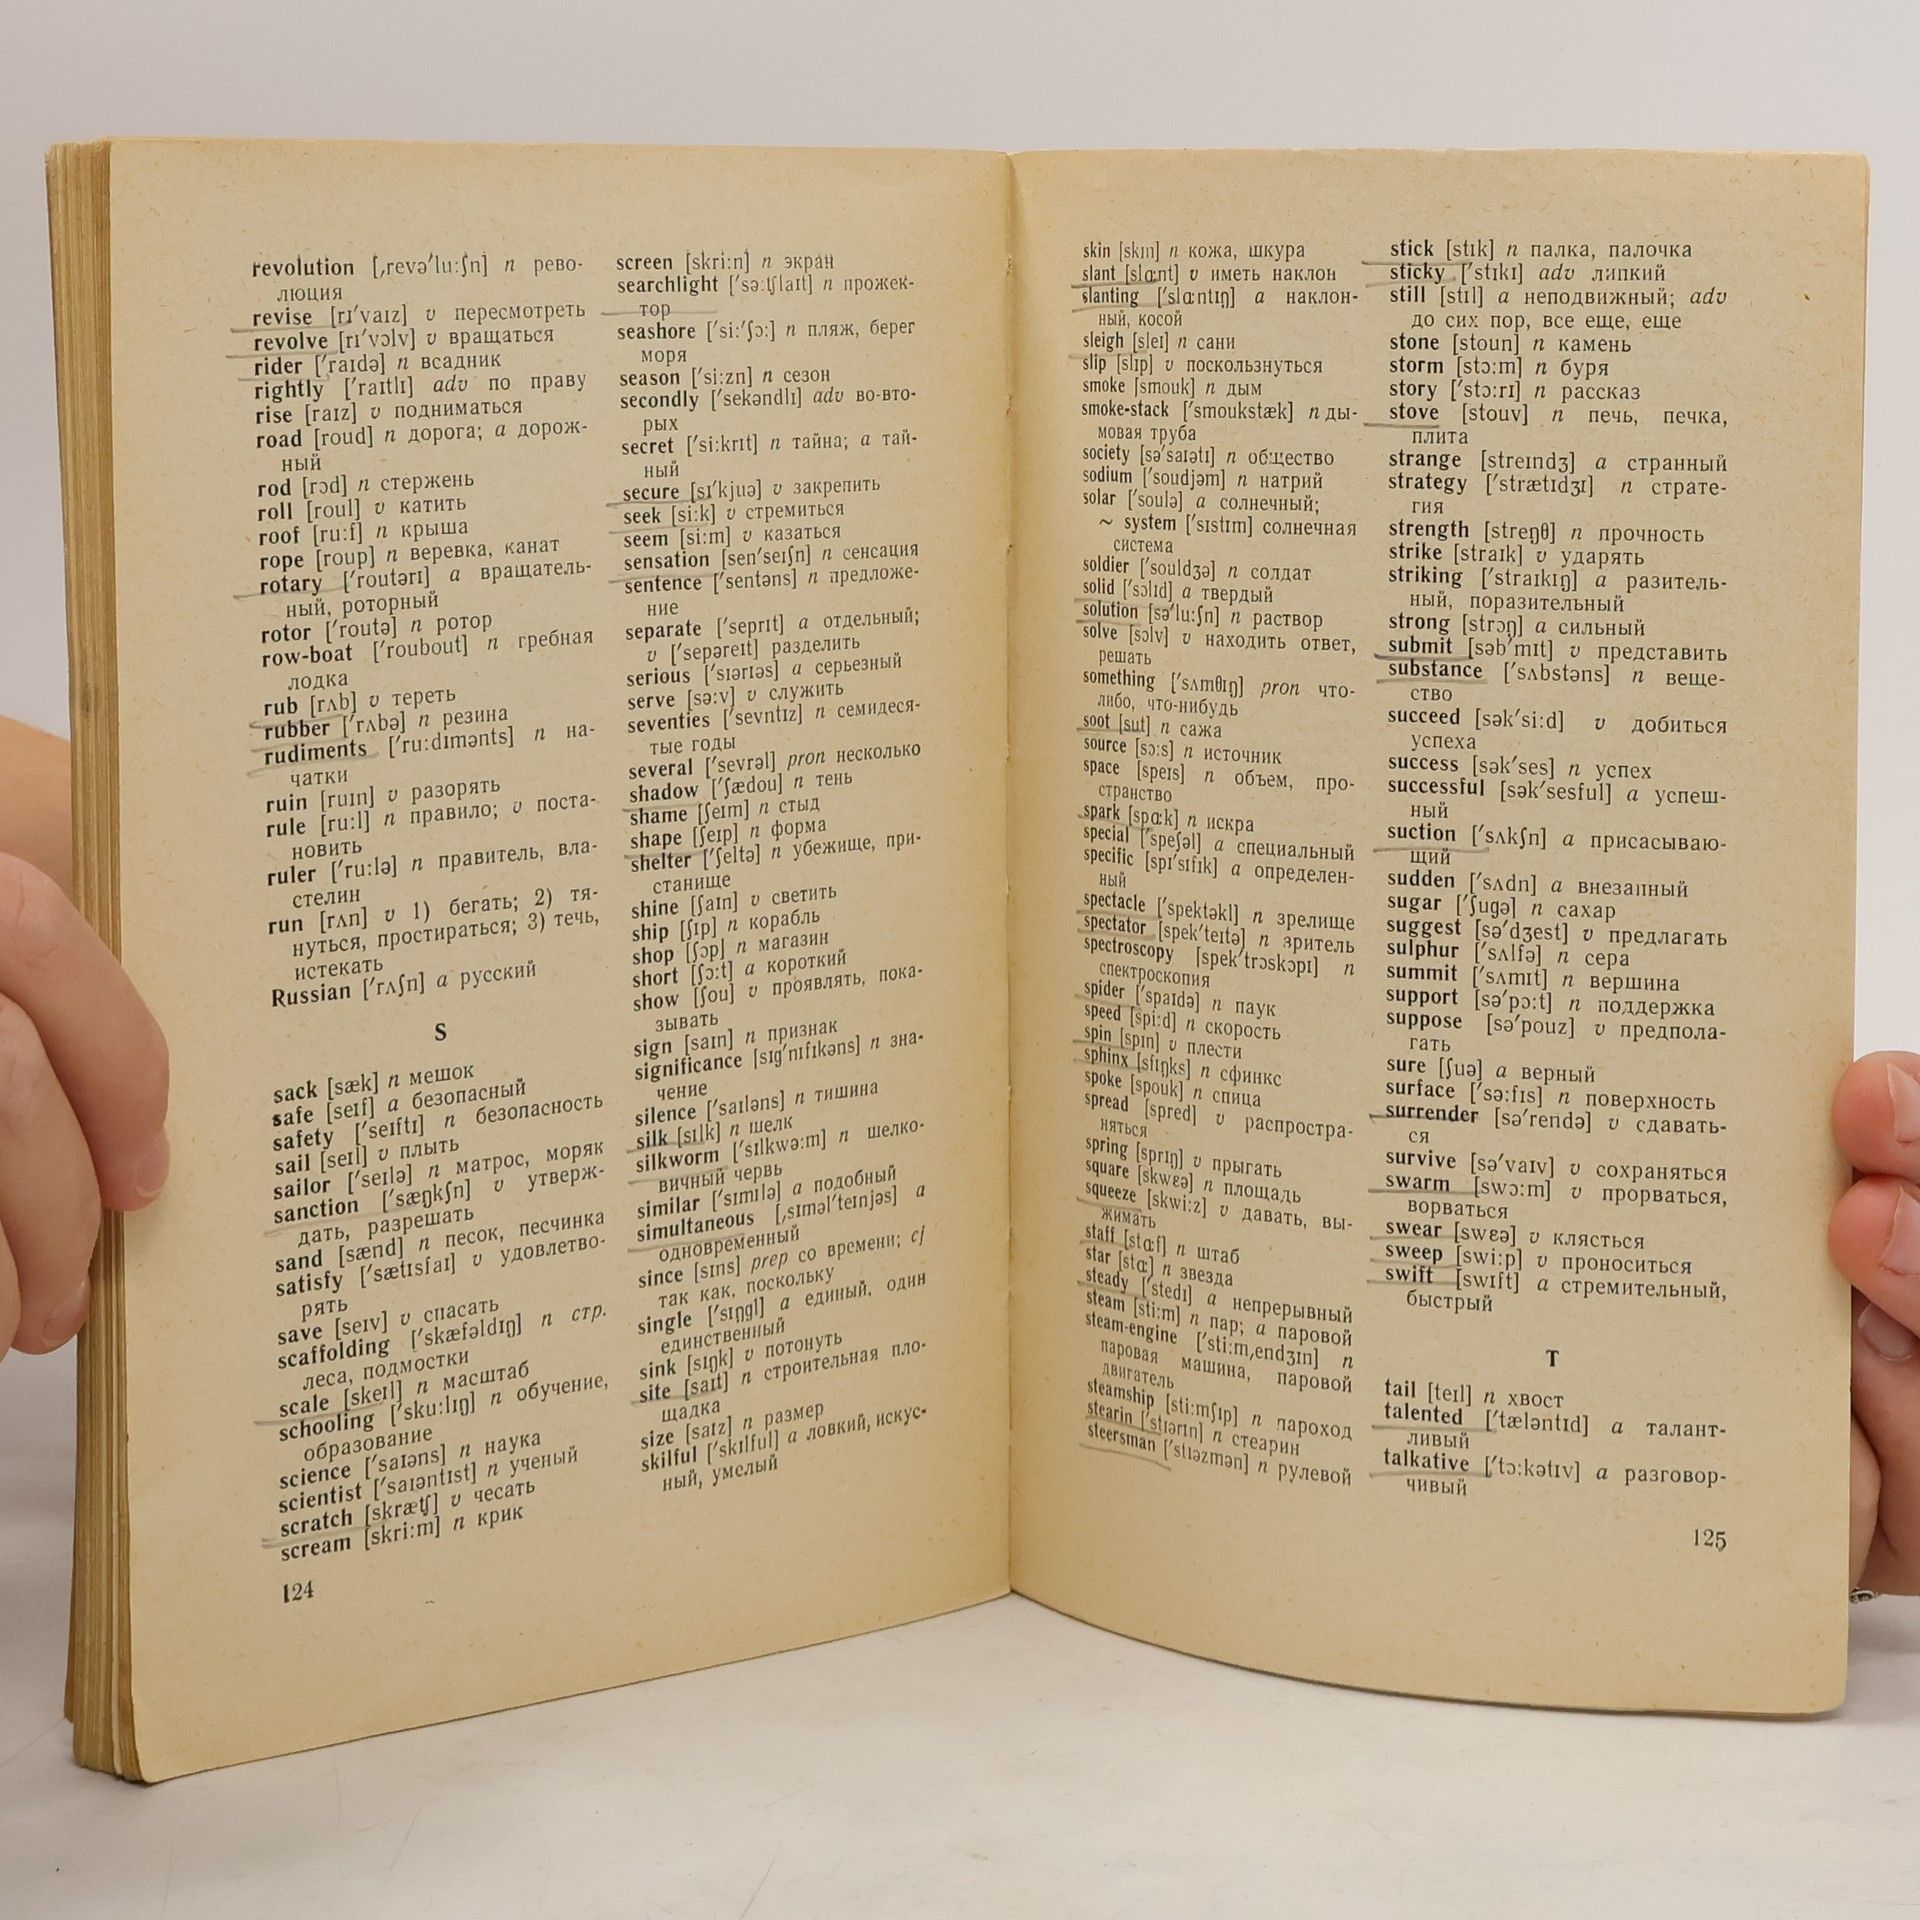 revolution [ˌrevə′lu:ʃn] n рево-
люция
revise [rɪ′vaɪz] v пересмотреть
revolve [rɪ′vɔlv] v вращаться
rider [′raɪdə] n всадник
rightly [′raɪtlɪ] adv по праву
rise [raɪz] v подниматься
road [roud] n дорога; a дорож-
ный
rod [rɔd] n стержень
roll [roul] v катить
roof [ru:f] n крыша
rope [roup] n веревка, канат
rotary [′routərɪ] a вращатель-
ный, роторный
rotor [′routə] n ротор
row-boat [′roubout] n гребная
лодка
rub [rʌb] v тереть
rubber [′rʌbə] n резина
rudiments [′ru:dɪmənts] n на-
чатки
ruin [ruɪn] v разорять
rule [ru:l] n правило; v поста-
новить
ruler [′ru:lə] n правитель, вла-
стелин
run [rʌn] v 1) бегать; 2) тя-
нуться, простираться; 3) течь,
истекать
Russian [′rʌʃn] a русский
S
sack [sæk] n мешок
safe [seɪf] a безопасный
safety [′seɪftɪ] n безопасность
sail [seɪl] v плыть
sailor [′seɪlə] n матрос, моряк
sanction [′sæŋkʃn] v утверж-
дать, разрешать
sand [sænd] n песок, песчинка
satisfy [′sætɪsfaɪ] v удовлетво-
рять
save [seɪv] v спасать
scaffolding [′skæfəldɪŋ] n стр.
леса, подмостки
scale [skeɪl] n масштаб
schooling [′sku:lɪŋ] n обучение,
образование
science [′saɪəns] n наука
scientist [′saɪəntɪst] n ученый
scratch [skrætʃ] v чесать
scream [skri:m] n крик
124
screen [skri:n] n экран
searchlight [′sə:tʃlaɪt] n прожек-
тор
seashore [′si:′ʃɔ:] n пляж, берег
моря
season [′si:zn] n сезон
secondly [′sekəndlɪ] adv во-вто-
рых
secret [′si:krɪt] n тайна; a тай-
ный
secure [sɪ′kjuə] v закрепить
seek [si:k] v стремиться
seem [si:m] v казаться
sensation [sen′seɪʃn] n сенсация
sentence [′sentəns] n предложе-
ние
separate [′seprɪt] a отдельный;
v [′sepəreɪt] разделить
serious [′sɪərɪəs] a серьезный
serve [sə:v] v служить
seventies [′sevntɪz] n семидеся-
тые годы
several [′sevrəl] pron несколько
shadow [′ʃædou] n тень
shame [ʃeɪm] n стыд
shape [ʃeɪp] n форма
shelter [′ʃeltə] n убежище, при-
станище
shine [ʃaɪn] v светить
ship [ʃɪp] n корабль
shop [ʃɔp] n магазин
short [ʃɔ:t] a короткий
show [ʃou] v проявлять, пока-
зывать
sign [saɪn] n признак
significance [sɪg′nɪfɪkəns] n зна-
чение
silence [′saɪləns] n тишина
silk [sɪlk] n шелк
silkworm [′sɪlkwə:m] n шелко-
вичный червь
similar [′sɪmɪlə] a подобный
simultaneous [ˌsɪməl′teɪnjəs] a
одновременный
since [sɪns] prep со времени; cj
так как, поскольку
single [′sɪŋgl] a единый, один
единственный
sink [sɪŋk] v потонуть
site [saɪt] n строительная пло-
щадка
size [saɪz] n размер
skilful [′skɪlful] a ловкий, искус-
ный, умелый
skin [skɪn] n кожа, шкура
slant [slɑ:nt] v иметь наклон
slanting [′slɑ:ntɪŋ] a наклон-
ный, косой
sleigh [sleɪ] n сани
slip [slɪp] v поскользнуться
smoke [smouk] n дым
smoke-stack [′smoukstæk] n ды-
мовая труба
society [sə′saɪətɪ] n общество
sodium [′soudjəm] n натрий
solar [′soulə] a солнечный;
~ system [′sɪstɪm] солнечная
система
soldier [′souldʒə] n солдат
solid [′sɔlɪd] a твердый
solution [sə′lu:ʃn] n раствор
solve [sɔlv] v находить ответ,
решать
something [′sʌmθɪŋ] pron что-
либо, что-нибудь
soot [sut] n сажа
source [sɔ:s] n источник
space [speɪs] n объем, про-
странство
spark [spɑ:k] n искра
special [′speʃəl] a специальный
specific [spɪ′sɪfɪk] a определен-
ный
spectacle [′spektəkl] n зрелище
spectator [spek′teɪtə] n зритель
spectroscopy [spek′trɔskɔpɪ] n
спектроскопия
spider [′spaɪdə] n паук
speed [spi:d] n скорость
spin [spɪn] v плести
sphinx [sfɪŋks] n сфинкс
spoke [spouk] n спица
spread [spred] v распростра-
няться
spring [sprɪŋ] v прыгать
square [skwɛə] n площадь
squeeze [skwi:z] v давать, вы-
жимать
staff [stɑ:f] n штаб
star [stɑ:] n звезда
steady [′stedɪ] a непрерывный
steam [sti:m] n пар; a паровой
steam-engine [′sti:mˌendʒɪn] n
паровая машина, паровой
двигатель
steamship [sti:mʃɪp] n пароход
stearin [′stɪərɪn] n стеарин
steersman [′stɪəzmən] n рулевой
stick [stɪk] n палка, палочка
sticky [′stɪkɪ] adv липкий
still [stɪl] a неподвижный; adv
до сих пор, все еще, еще
stone [stoun] n камень
storm [stɔ:m] n буря
story [′stɔ:rɪ] n рассказ
stove [stouv] n печь, печка,
плита
strange [streɪndʒ] a странный
strategy [′strætɪdʒɪ] n страте-
гия
strength [streŋθ] n прочность
strike [straɪk] v ударять
striking [′straɪkɪŋ] a разитель-
ный, поразительный
strong [strɔŋ] a сильный
submit [səb′mɪt] v представить
substance [′sʌbstəns] n веще-
ство
succeed [sək′si:d] v добиться
успеха
success [sək′ses] n успех
successful [sək′sesful] a успеш-
ный
suction [′sʌkʃn] a присасываю-
щий
sudden [′sʌdn] a внезапный
sugar [′ʃugə] n сахар
suggest [sə′dʒest] v предлагать
sulphur [′sʌlfə] n сера
summit [′sʌmɪt] n вершина
support [sə′pɔ:t] n поддержка
suppose [sə′pouz] v предпола-
гать
sure [ʃuə] a верный
surface [′sə:fɪs] n поверхность
surrender [sə′rendə] v сдавать-
ся
survive [sə′vaɪv] v сохраняться
swarm [swɔ:m] v прорваться,
ворваться
swear [swɛə] v клясться
sweep [swi:p] v проноситься
swift [swɪft] a стремительный,
быстрый
T
tail [teɪl] n хвост
talented [′tæləntɪd] a талант-
ливый
talkative [′tɔ:kətɪv] a разговор-
чивый
125